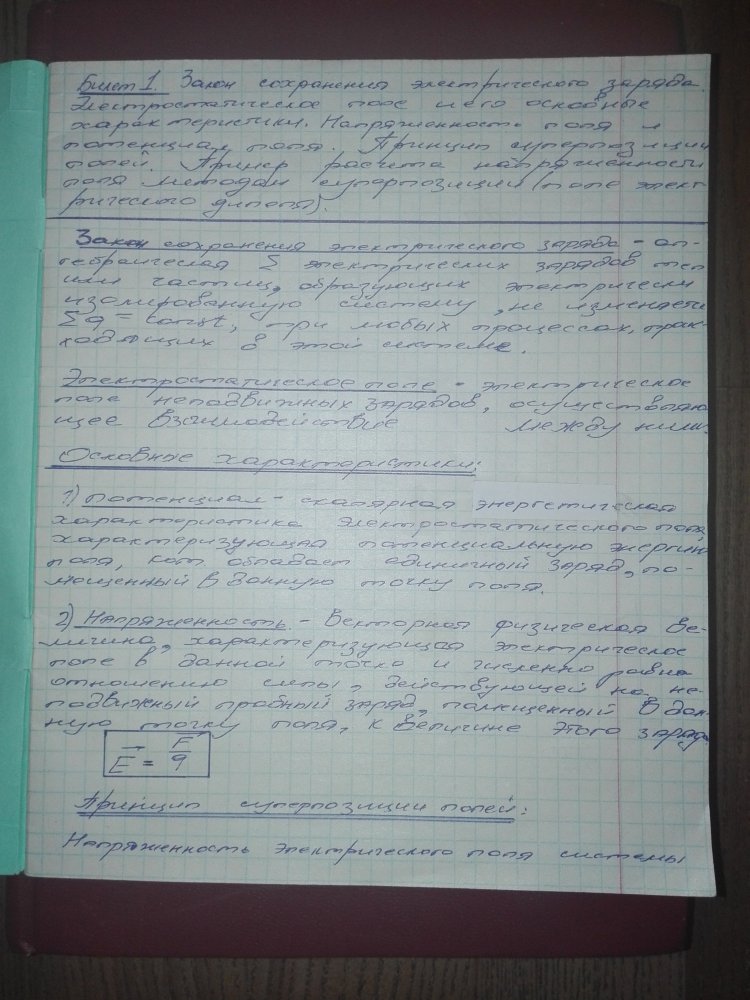 Билет 1. Закон сохранения электрического заряда.
Электростатическое поле и его основные
характеристики. Напряженность поля и
потенциал поля. Принцип суперпозиции
полей. Пример расчета напряженности
поля методом суперпозиции (поле элект
рического диполя).
Закон сохранения электрического заряда - ал-
гебраическая Σ электрических зарядов тел
или частиц, образующих электрически
изолированную систему, не изменяется
Σq = const, при любых процессах, прои-
ходящих в этой системе.
Электростатическое поле - электрическое
поле неподвижных зарядов, осуществляю
щее взаимодействие между ними.
Основные характеристики:
1) Потенциал - скалярная энергетическая
характеристика электростатического поля,
характеризующая потенциальную энергию
поля, кот. обладает единичный заряд, по-
мещенный в данную точку поля.
2) Напряженность - векторная физическая ве-
личина, характеризующая электрическое
поле в данной точке и численно равна
отношению силы, действующей на не-
подвижный пробный заряд, помещенный в дан-
ную точку поля, к величине этого заряда
E⃗ = F⃗/q
Принцип суперпозиции полей:
Напряженность электрического поля системы